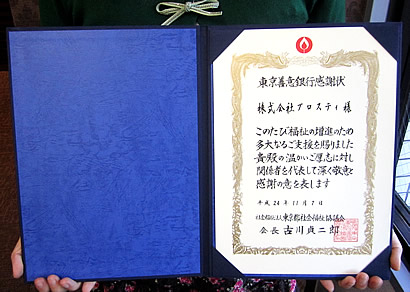 東京善意銀行感謝状
株式会社アロスティ様
このたび福祉の増進のため
多大なるご支援を賜りました
貴殿の温かいご厚志に対し
関係者を代表して深く敬意と
感謝の意を表します
平成24年11月7日
社会福祉法人 東京都社会福祉協議会
会長 古川貞二郎